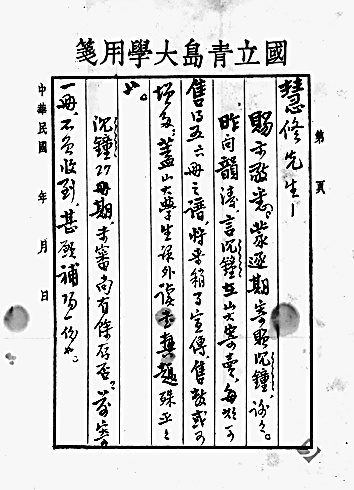 國立青島大學用箋
第 頁
慧修先生：
賜示敬悉。蒙逐期寄贈沉鐘，謝謝。
昨向韻濤言沉鐘在山大寄賣，每期可
售得五六冊之譜，將來稍事宣傳，售數或可
增多。蓋山大學生課外讀書興趣殊平平
也。
沉鐘27期，未審尚有餘存否？前寄
一冊，不 收到，甚願補 一份也。
中華民國 年 月 日